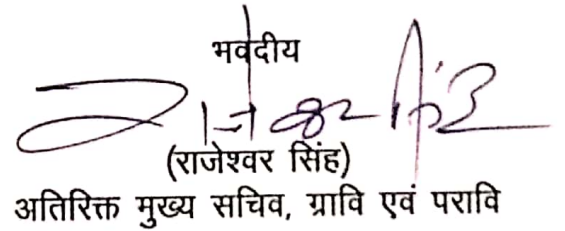 भवदीय
राजेश्वर सिंह
(राजेश्वर सिंह)
अतिरिक्त मुख्य सचिव, ग्रावि एवं परावि